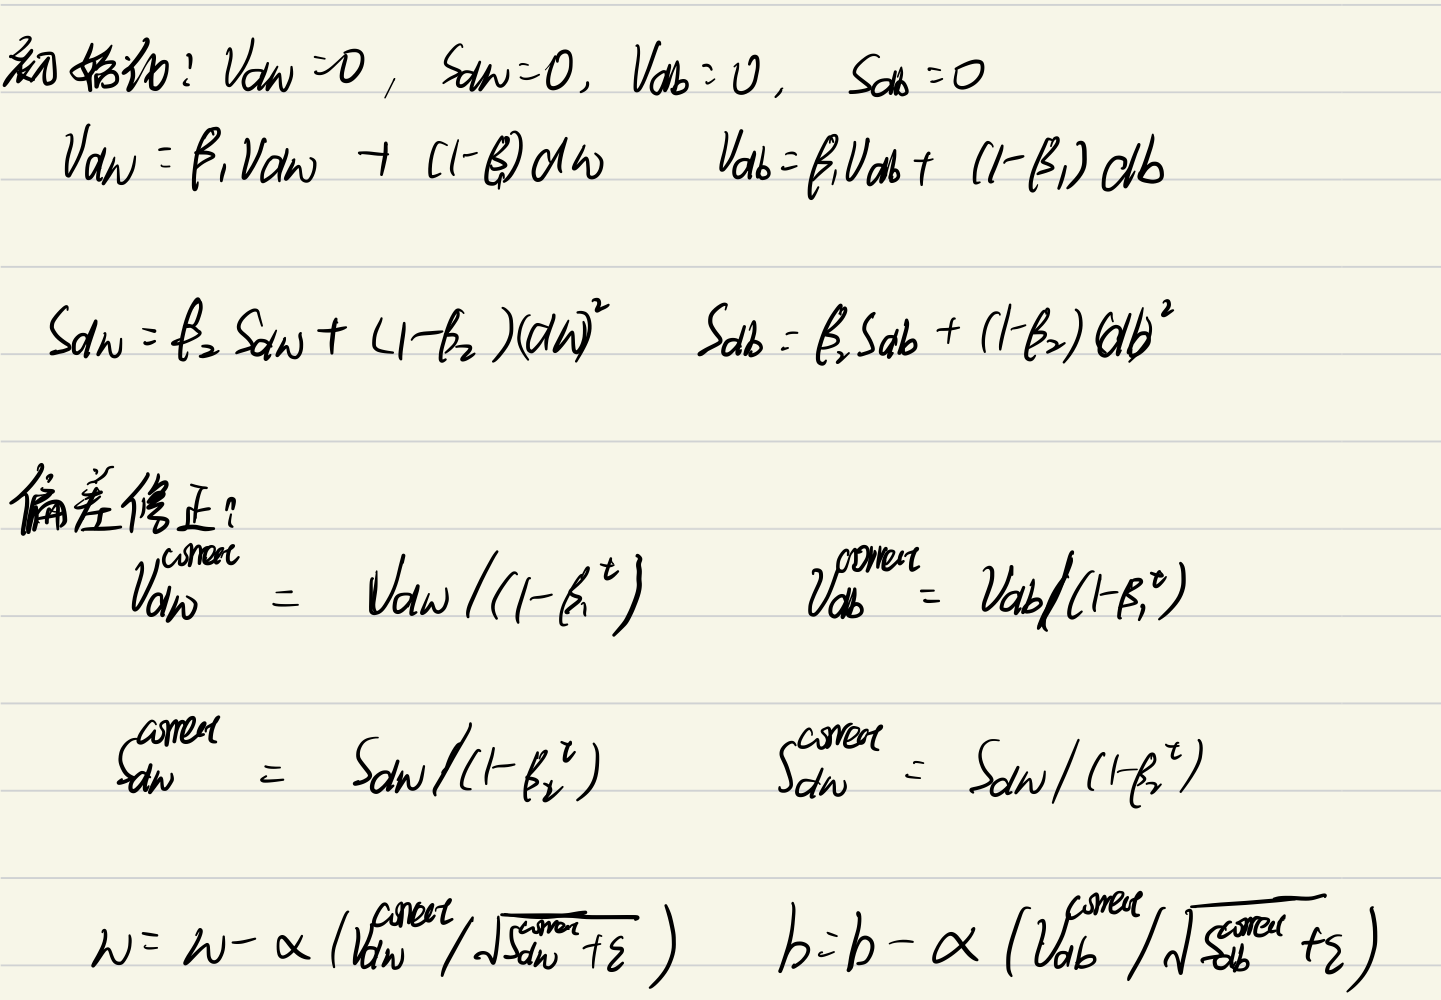 初始化: V_dw = 0, S_dw = 0, V_db = 0, S_db = 0
V_dw = β₁V_dw + (1-β₁)dw V_db = β₁V_db + (1-β₁)db
S_dw = β₂S_dw + (1-β₂)(dw)² S_db = β₂S_db + (1-β₂)(db)²
偏差修正:
V_dw^correct = V_dw/(1-β₁^t) V_db^correct = V_db/(1-β₁^t)
S_dw^correct = S_dw/(1-β₂^t) S_dw^correct = S_dw/(1-β₂^t)
w = w - α(V_dw^correct/√(S_dw^correct+ε)) b = b - α(V_db^correct/√(S_db^correct+ε))